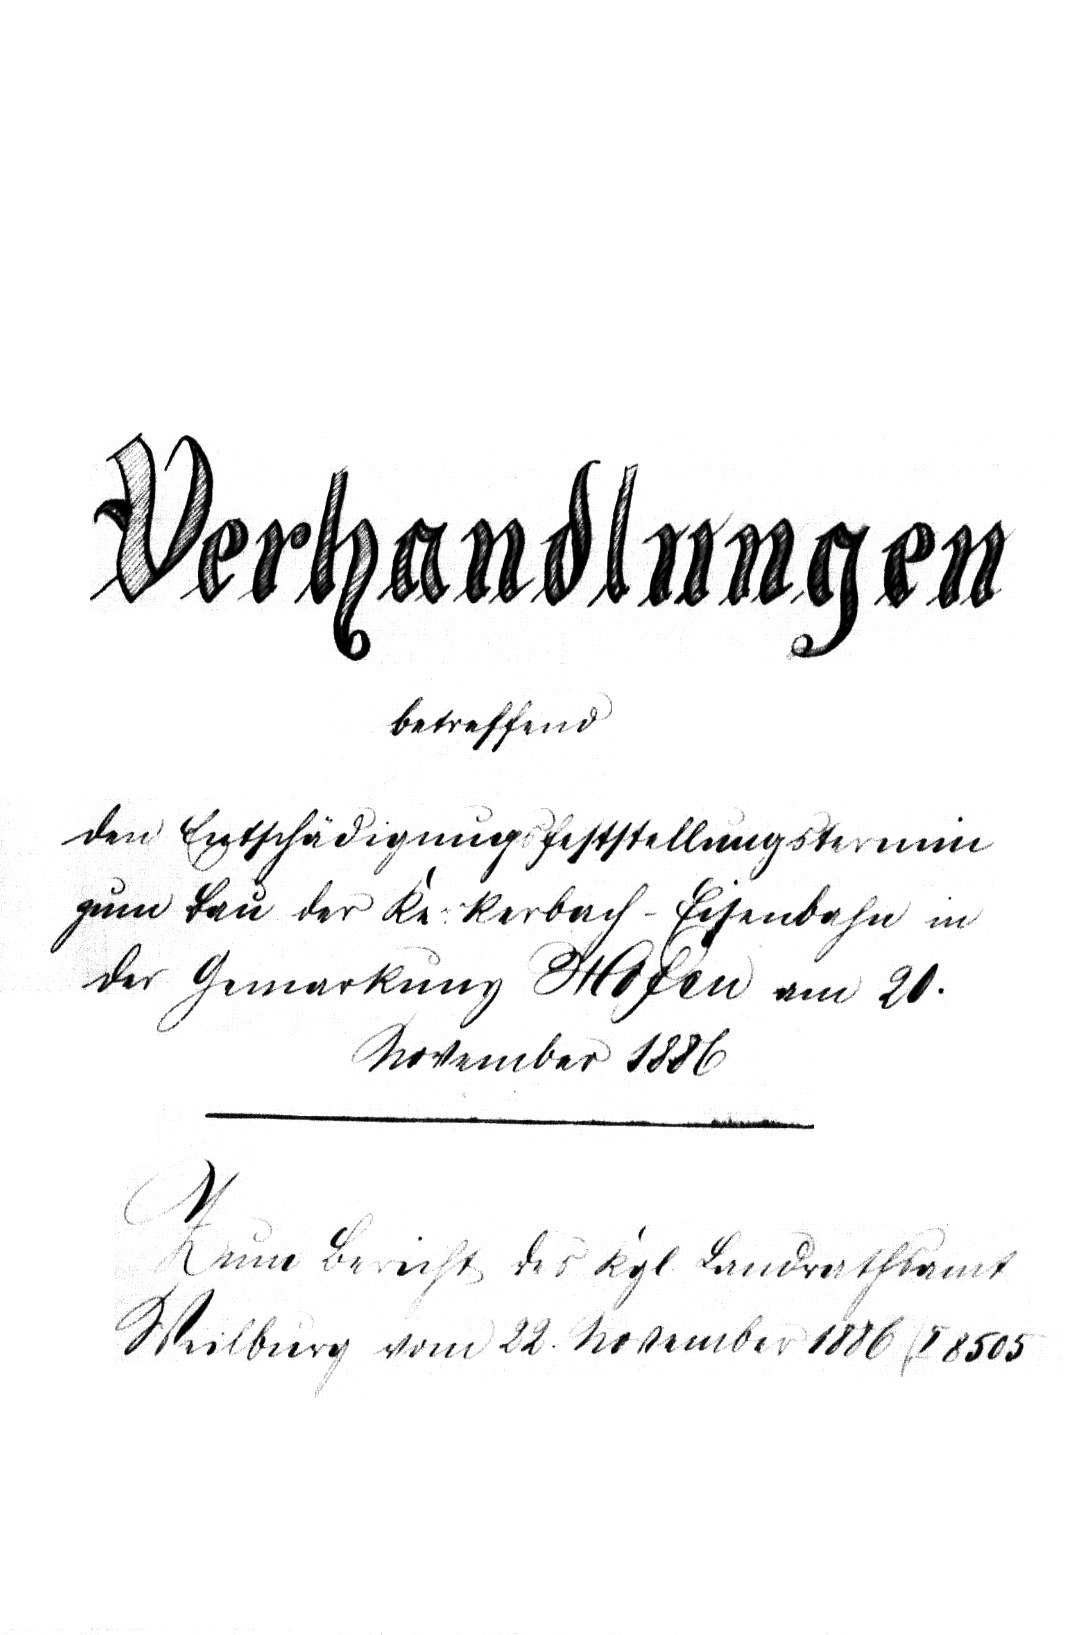 Verhandlungen
betreffend
den Entschädigungsfeststellungstermin
zum Bau der Ke: kerbach-Eisenbahn in
der Gemarkung Hofen am 20.
November 1886
Zum Bericht des Kgl. Landrathsamt
Weilburg vom 22. November 1886 (I 8505